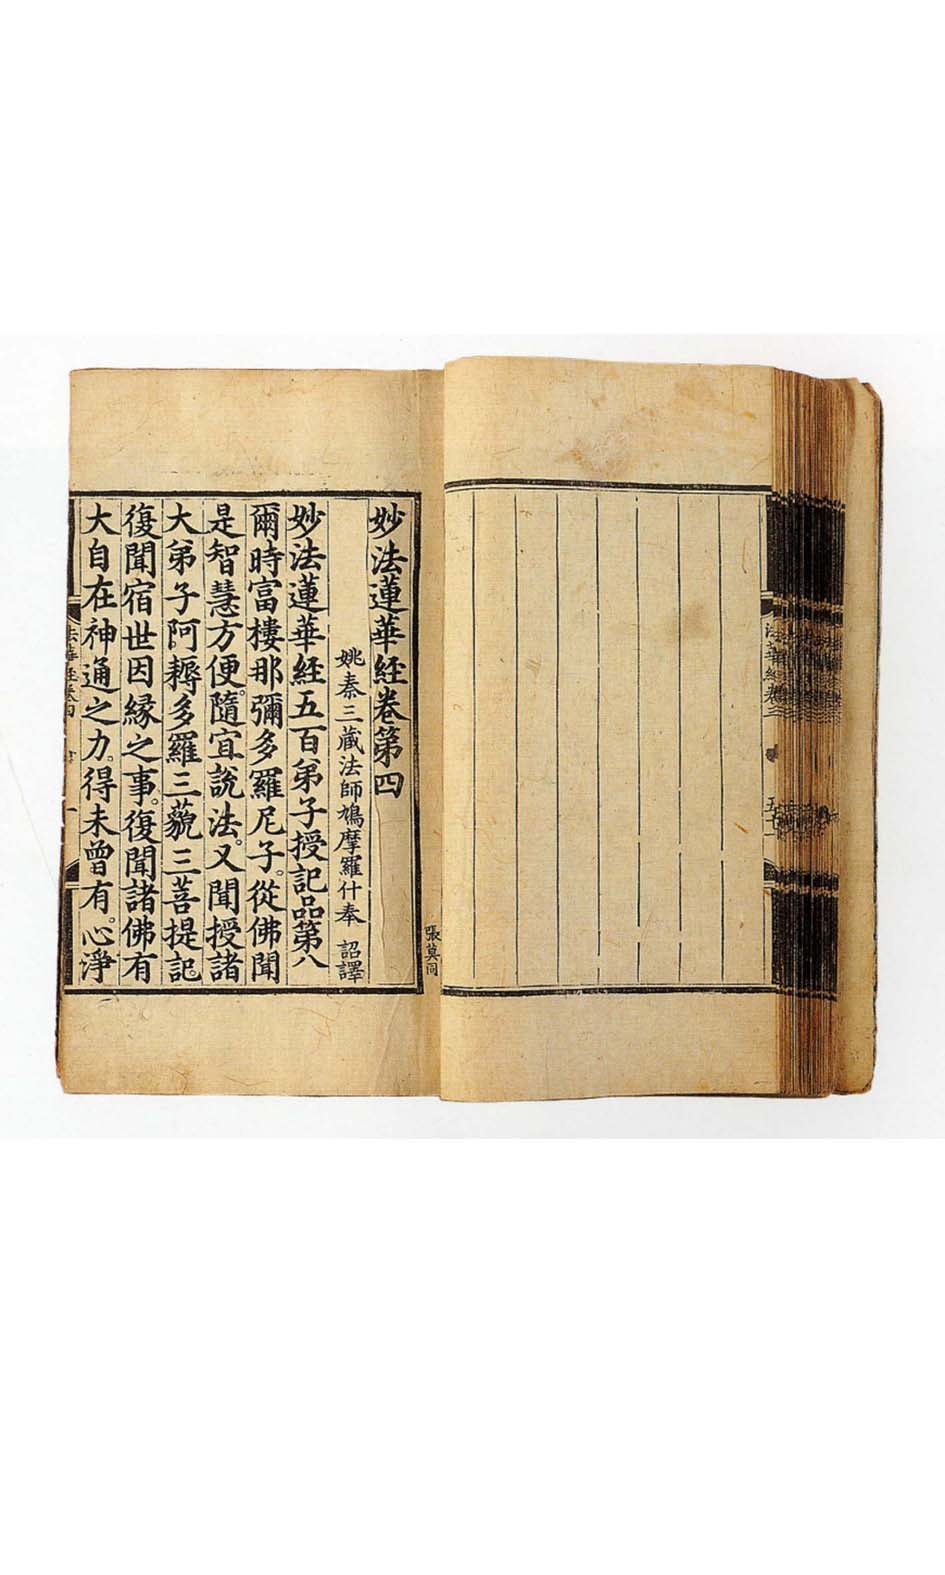 妙法蓮華経卷第四
姚秦三藏法師鳩摩羅什奉 詔譯
妙法蓮華経五百弟子授記品第八
爾時富樓那彌多羅尼子。從佛聞
是智慧方便。隨宜說法。又聞授諸
大弟子阿耨多羅三藐三菩提記。
復聞宿世因緣之事。復聞諸佛有
大自在神通之力。得未曾有。心淨
張莫同